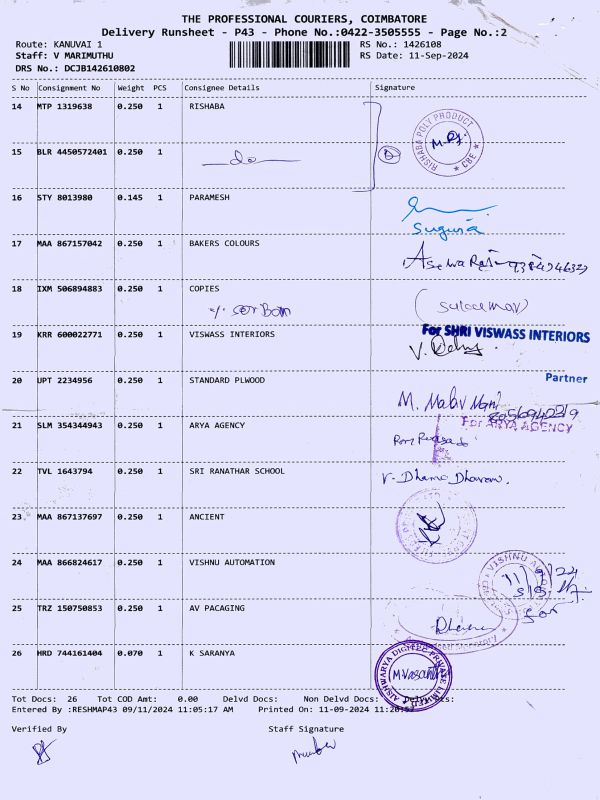 THE PROFESSIONAL COURIERS, COIMBATORE
Delivery Runsheet - P43 - Phone No.:0422-3505555 - Page No.:2
Route: KANUVAI 1
RS No.: 1426108
Staff: V MARIMUTHU
RS Date: 11-Sep-2024
DRS No.: DCJB142610802
S No Consignment No Weight PCS Consignee Details Signature
14 MTP 1319638 0.250 1 RISHABA
RISHABA POLY PRODUCT ★ CBE ★
15 BLR 4450572401 0.250 1 do
16 STY 8013980 0.145 1 PARAMESH
Suguna
17 MAA 867157042 0.250 1 BAKERS COLOURS
18 IXM 506894883 0.250 1 COPIES
19 KRR 600022771 0.250 1 VISWASS INTERIORS
For SHRI VISWASS INTERIORS
Partner
20 UPT 2234956 0.250 1 STANDARD PLWOOD
M. Malar Mani
21 SLM 354344943 0.250 1 ARYA AGENCY
For ARYA AGENCY
22 TVL 1643794 0.250 1 SRI RANATHAR SCHOOL
V. Dhama Dharan.
23 MAA 867137697 0.250 1 ANCIENT
24 MAA 866824617 0.250 1 VISHNU AUTOMATION
25 TRZ 150750853 0.250 1 AV PACAGING
26 HRD 744161404 0.070 1 K SARANYA
AISHWARYA DIGITEE PRIVATE LIMITED
Tot Docs: 26 Tot COD Amt: 0.00 Delvd Docs: Non Delvd Docs: Delvd Pcs:
Entered By :RESHMAP43 09/11/2024 11:05:17 AM Printed On: 11-09-2024
Verified By Staff Signature